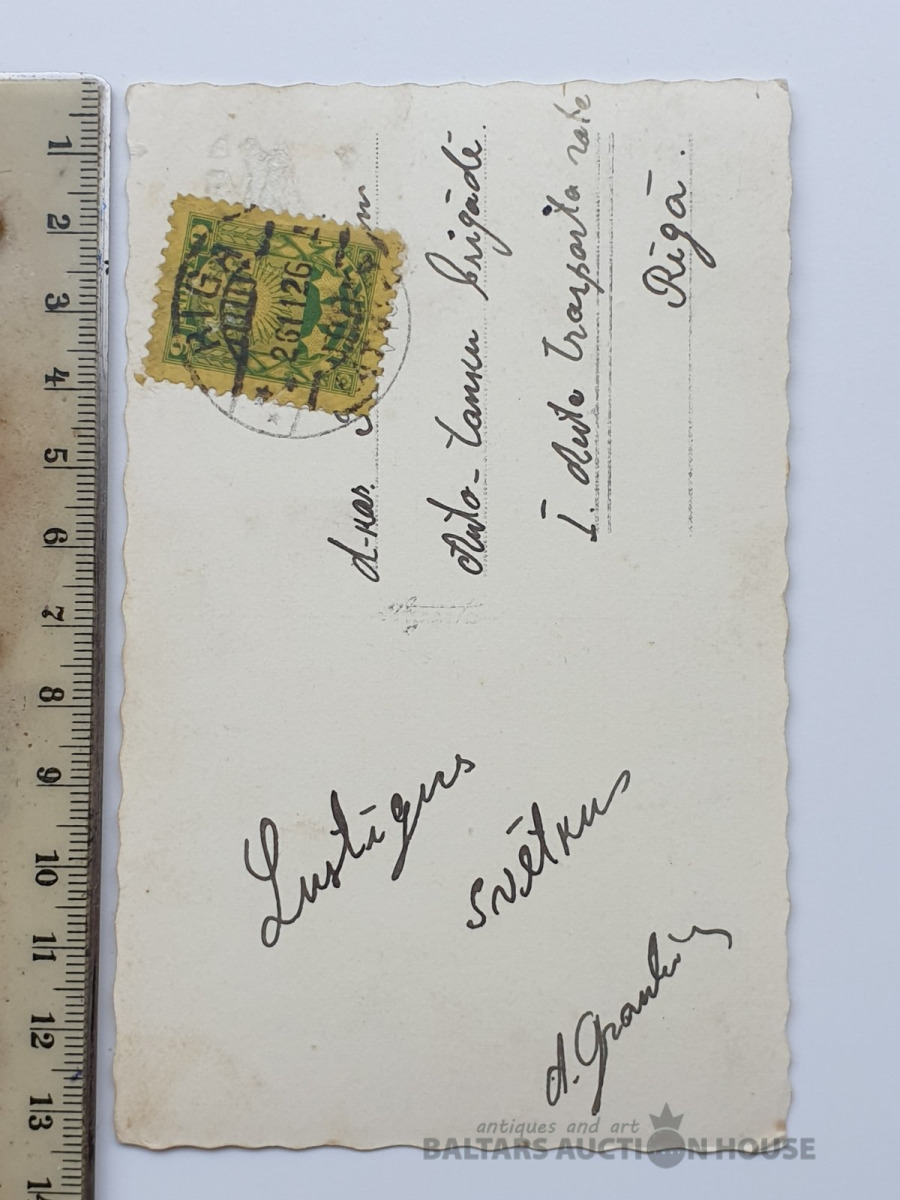 Lustīgus
svētkus
d-kas.
Auto-tanku brigādē.
I. Auto transporta rote
Rīgā.
RIGA
26 11 26
1 2 3 4 5 6 7 8 9 10 11 12 13
antiques and art
BALTARS AUCTION HOUSE